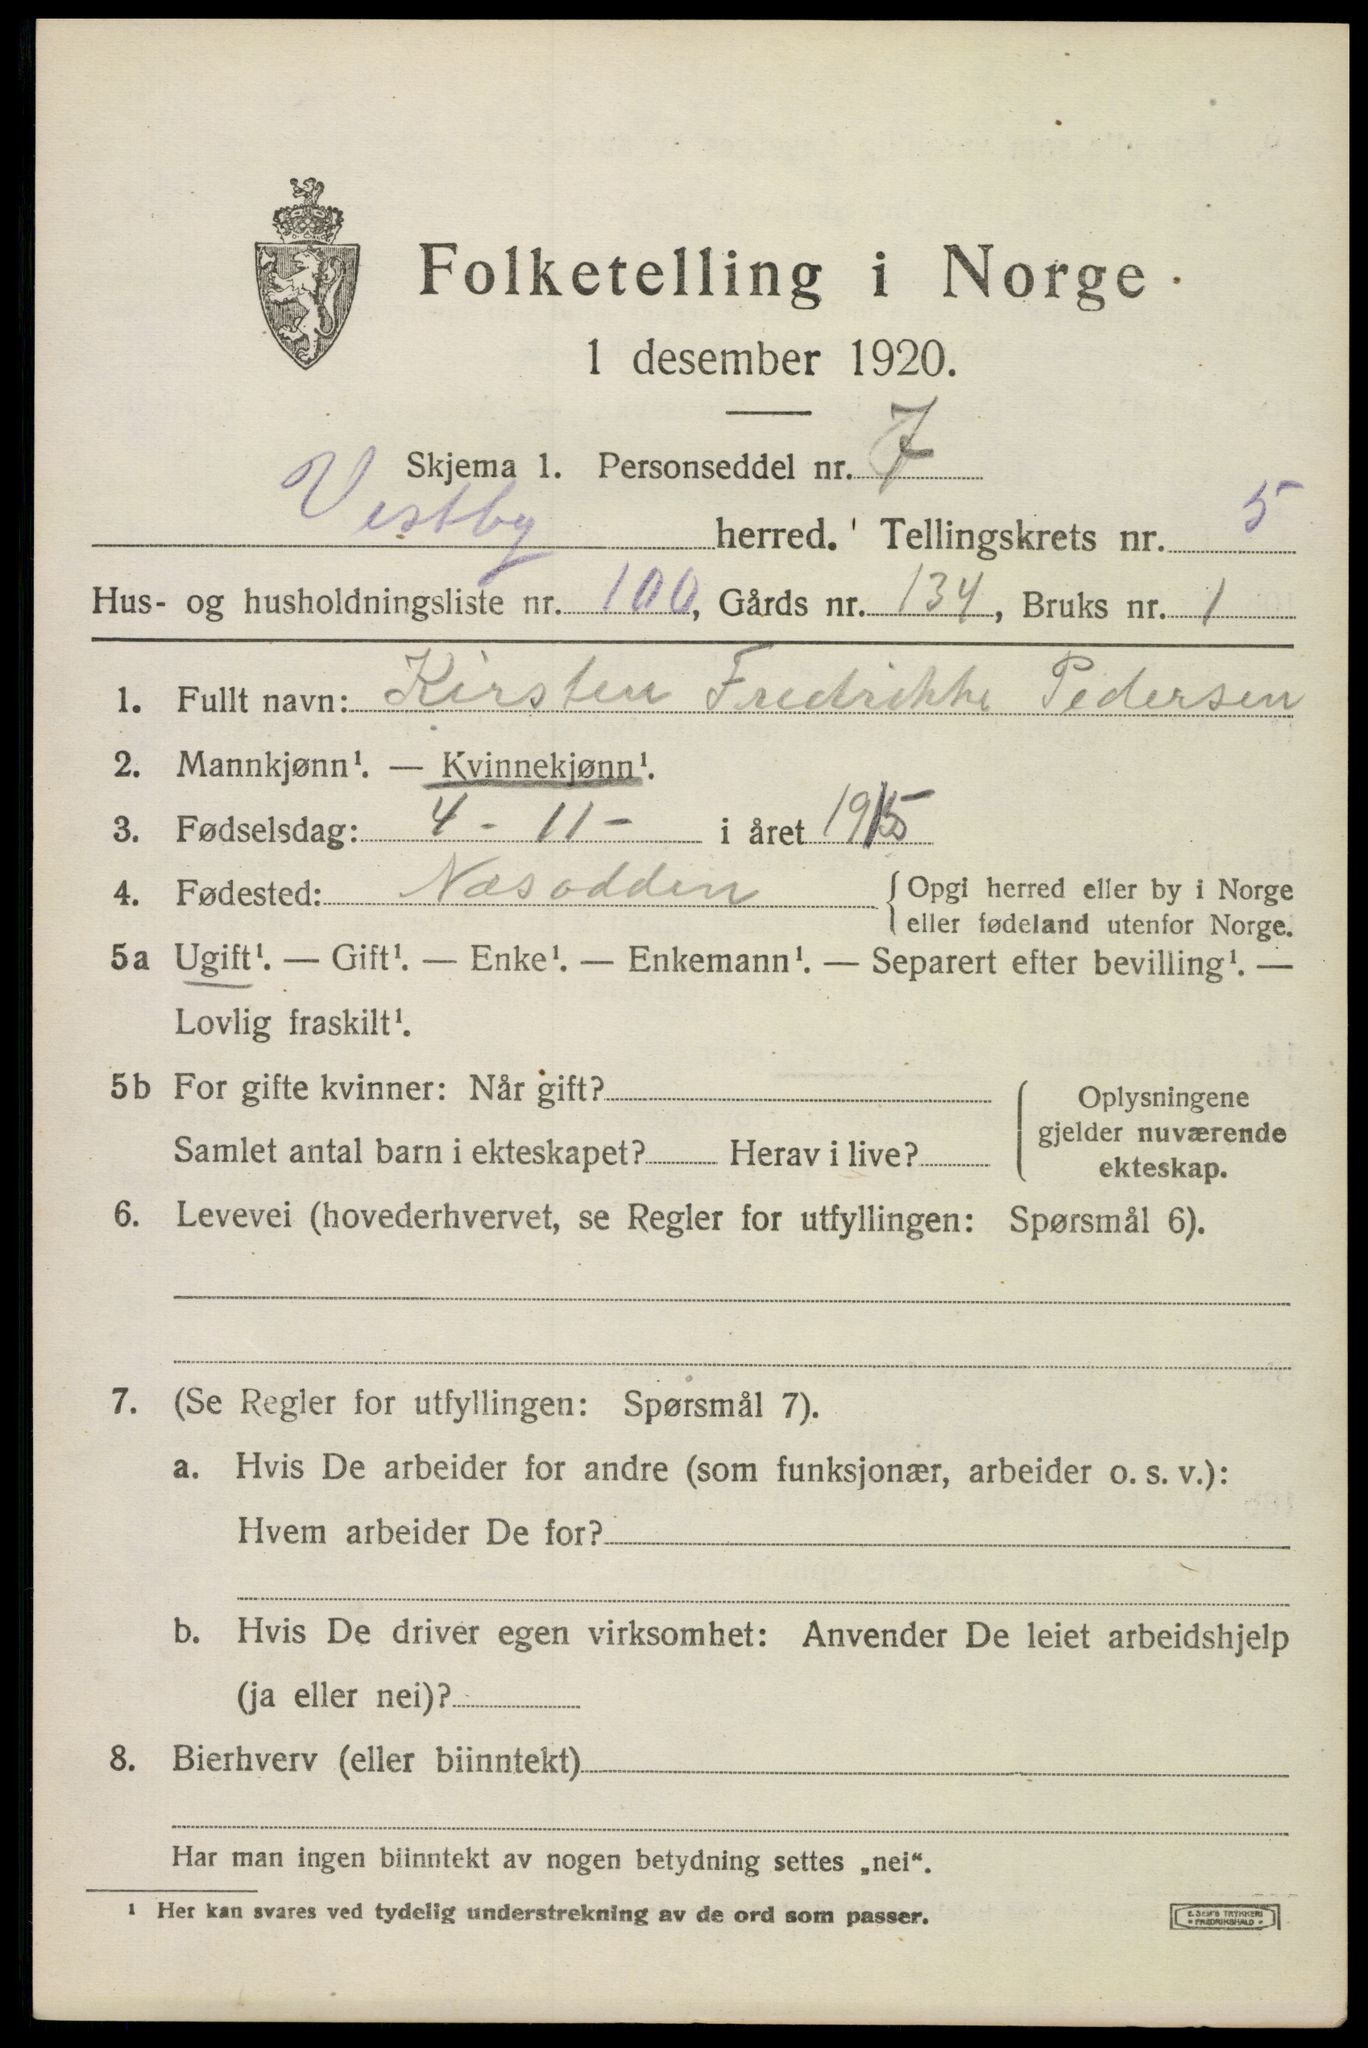 Folketelling i Norge
1 desember 1920.
Skjema 1. Personseddel nr. 7
Vestby herred. Tellingskrets nr. 5
Hus- og husholdningsliste nr. 100, Gårds nr. 134, Bruks nr. 1
1. Fullt navn: Kirsten Fredrikke Pedersen
2. Mannkjønn¹. — Kvinnekjønn¹.
3. Fødselsdag: 4 - 11 - i året 1915
4. Fødested: Næsodden { Opgi herred eller by i Norge
eller fødeland utenfor Norge.
5a Ugift¹. — Gift¹. — Enke¹. — Enkemann¹. — Separert efter bevilling¹. —
Lovlig fraskilt¹.
5b For gifte kvinner: Når gift?
Samlet antal barn i ekteskapet? Herav i live?
Oplysningene
gjelder nuværende
ekteskap.
6. Levevei (hovederhvervet, se Regler for utfyllingen: Spørsmål 6).
7. (Se Regler for utfyllingen: Spørsmål 7).
a. Hvis De arbeider for andre (som funksjonær, arbeider o. s. v.):
Hvem arbeider De for?
b. Hvis De driver egen virksomhet: Anvender De leiet arbeidshjelp
(ja eller nei)?
8. Bierhverv (eller biinntekt)
Har man ingen biinntekt av nogen betydning settes „nei“.
¹ Her kan svares ved tydelig understrekning av de ord som passer.
E. SEM'S TRYKKERI
FREDRIKSHALD